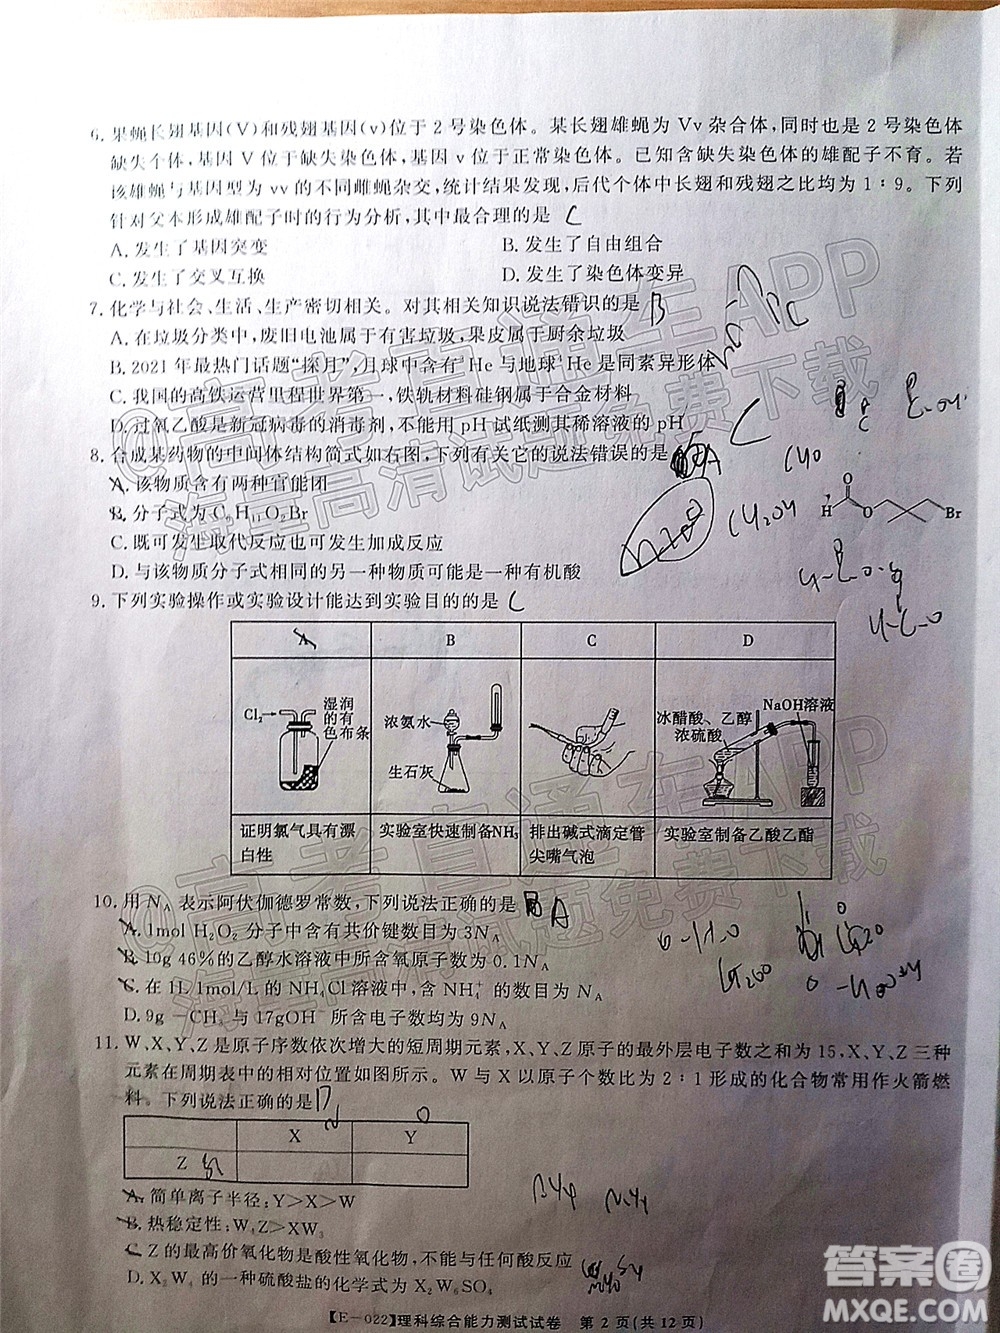 6. 果蝇长翅基因(V)和残翅基因(v)位于 2 号染色体。某长翅雄蝇为 Vv 杂合体,同时也是 2 号染色体
缺失个体,基因 V 位于缺失染色体,基因 v 位于正常染色体。已知含缺失染色体的雄配子不育。若
该雄蝇与基因型为 vv 的不同雌蝇杂交,统计结果发现,后代个体中长翅和残翅之比均为 1:9。下列
针对父本形成雄配子时的行为分析,其中最合理的是 C
A. 发生了基因突变 B. 发生了自由组合
C. 发生了交叉互换 D. 发生了染色体变异
7. 化学与社会、生活、生产密切相关。对其相关知识说法错误的是 B
A. 在垃圾分类中,废旧电池属于有害垃圾,果皮属于厨余垃圾
B. 2021 年最热门话题“探月”,月球中含有 ³He 与地球 ⁴He 是同素异形体
C. 我国的高铁运营里程世界第一,铁轨材料硅钢属于合金材料
D. 过氧乙酸是新冠病毒的消毒剂,不能用 pH 试纸测其稀溶液的 pH
8. 合成某药物的中间体结构简式如右图,下列有关它的说法错误的是 A C
A. 该物质含有两种官能团
B. 分子式为 C₇H₁₁O₂Br
C. 既可发生取代反应也可发生加成反应
D. 与该物质分子式相同的另一种物质可能是一种有机酸
CHO
CH₂OH
H O O Br
9. 下列实验操作或实验设计能达到实验目的的是 C
A B C D
Cl₂ 湿润的有色布条
浓氨水 生石灰
冰醋酸、乙醇 浓硫酸 NaOH溶液
证明氯气具有漂白性
实验室快速制备NH₃
排出碱式滴定管尖嘴气泡
实验室制备乙酸乙酯
10. 用 N_A 表示阿伏伽德罗常数,下列说法正确的是 A
A. 1mol H₂O₂ 分子中含有共价键数目为 3N_A
B. 10g 46%的乙醇水溶液中所含氧原子数为 0.1N_A
C. 在 1L 1mol/L 的 NH₄Cl 溶液中,含 NH₄⁺ 的数目为 N_A
D. 9g -CH₃ 与 17gOH⁻ 所含电子数均为 9N_A
11. W、X、Y、Z 是原子序数依次增大的短周期元素,X、Y、Z 的最外层电子数之和为 15,X、Y、Z 三种
元素在周期表中的相对位置如图所示。W 与 X 以原子个数比为 2:1 形成的化合物常用作火箭燃
料。下列说法正确的是 D
N O
X Y
Z
A. 简单离子半径:Y>X>W
B. 热稳定性:W₄Z>XW₃
C. Z 的最高价氧化物是酸性氧化物,不能与任何酸反应
D. X₂W₄ 的一种硫酸盐的化学式为 X₂W₆SO₄
【E-022】理科综合能力测试试卷 第 2 页(共 12 页)
@高考直通车APP
海量高清试题免费下载
@高考直通车APP
海量高清试题免费下载
答案圈
MXQE.COM